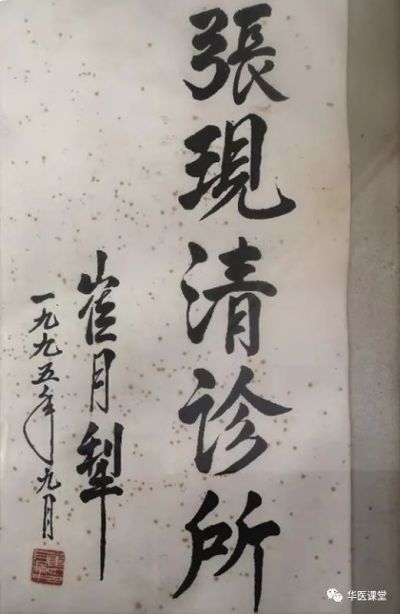 張現清诊所
崔月犁
一九九五年九月
华医课堂